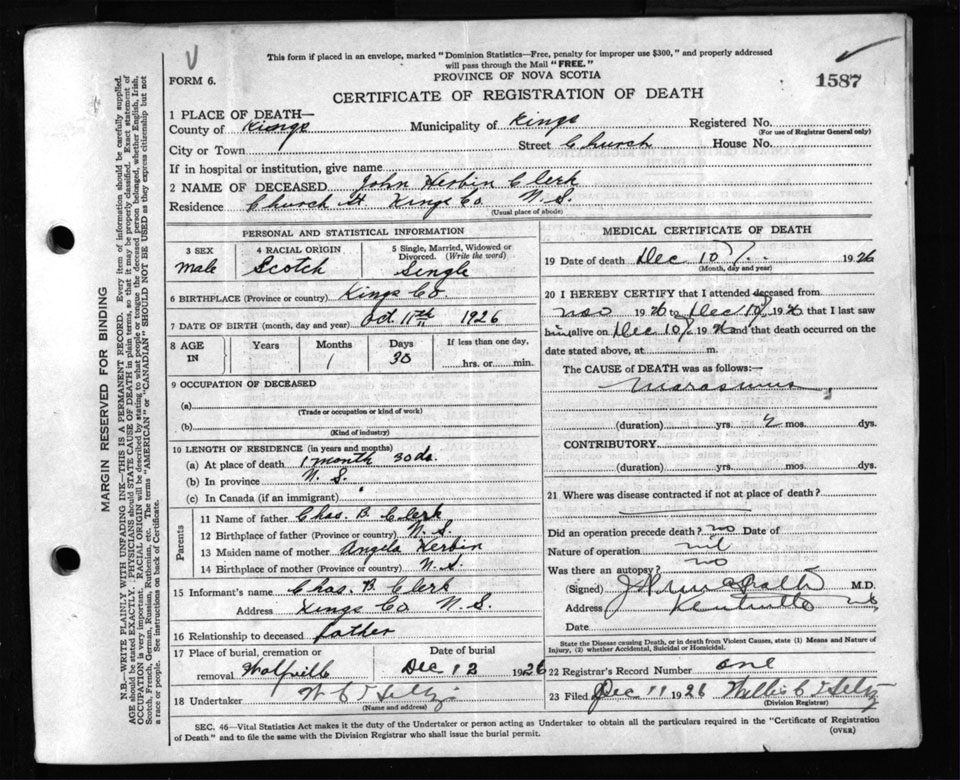 This form if placed in an envelope, marked "Dominion Statistics—Free, penalty for improper use $300," and properly addressed
will pass through the Mail "FREE."
FORM 6.
PROVINCE OF NOVA SCOTIA
1587
CERTIFICATE OF REGISTRATION OF DEATH
1 PLACE OF DEATH—
County of Kings Municipality of Kings Registered No.
(For use of Registrar General only)
City or Town Street Church House No.
If in hospital or institution, give name
2 NAME OF DECEASED John Herbin Clerk
Residence Church St Kings Co N. S.
(Usual place of abode)
PERSONAL AND STATISTICAL INFORMATION
3 SEX
male
4 RACIAL ORIGIN
Scotch
5 Single, Married, Widowed or
Divorced. (Write the word)
Single
6 BIRTHPLACE (Province or country) Kings Co
7 DATE OF BIRTH (month, day and year) Oct 11th 1926
8 AGE
IN
Years
Months
1
Days
30
If less than one day,
hrs. or min.
9 OCCUPATION OF DECEASED
(a)
(Trade or occupation or kind of work)
(b)
(Kind of industry)
10 LENGTH OF RESIDENCE (in years and months)
(a) At place of death 1 month 30 ds.
(b) In province N. S.
(c) In Canada (if an immigrant)
Parents
11 Name of father Chas. B Clerk
12 Birthplace of father (Province or country) N. S.
13 Maiden name of mother Angela Herbin
14 Birthplace of mother (Province or country) N. S.
15 Informant's name Chas. B Clerk
Address Kings Co N. S.
16 Relationship to deceased father
17 Place of burial, cremation or
removal Wolfville
Date of burial
Dec 12 1926
18 Undertaker W C T
(Name and address)
MEDICAL CERTIFICATE OF DEATH
19 Date of death Dec 10 1926
(Month, day and year)
20 I HEREBY CERTIFY that I attended deceased from
Nov 1926 to Dec 10 1926 that I last saw
him alive on Dec 10 1926 and that death occurred on
the date stated above, at m.
The CAUSE of DEATH was as follows:—
marasmus
(duration) yrs. 2 mos. dys.
CONTRIBUTORY.
(duration) yrs. mos. dys.
21 Where was disease contracted if not at place of death?
Did an operation precede death? no Date of
Nature of operation nil
Was there an autopsy? no
(Signed) M.D.
Address Kentville NS
Date
State the Disease causing Death, or in death from Violent Causes, state (1) Means and Nature of
Injury, (2) whether Accidental, Suicidal or Homicidal.
22 Registrar's Record Number one
23 Filed Dec 11 1926 Willie C T
(Division Registrar)
SEC. 46—Vital Statistics Act makes it the duty of the Undertaker or person acting as Undertaker to obtain all the particulars required in the "Certificate of Registration
of Death" and to file the same with the Division Registrar who shall issue the burial permit.
(OVER)
MARGIN RESERVED FOR BINDING
N.B.—WRITE PLAINLY WITH UNFADING INK—THIS IS A PERMANENT RECORD. Every item of information should be carefully supplied.
AGE should be stated EXACTLY. PHYSICIANS should STATE CAUSE OF DEATH in plain terms, so that it may be properly classified. Exact statement of
OCCUPATION is very important. RACIAL ORIGIN will be described by stating to what people or tongue the deceased person belonged, whether English, Irish,
Scotch, French, German, Russian, Ruthenian, etc. The terms "AMERICAN" or "CANADIAN" SHOULD NOT BE USED as they express citizenship but not
a race or people. See instructions on back of Certificate.